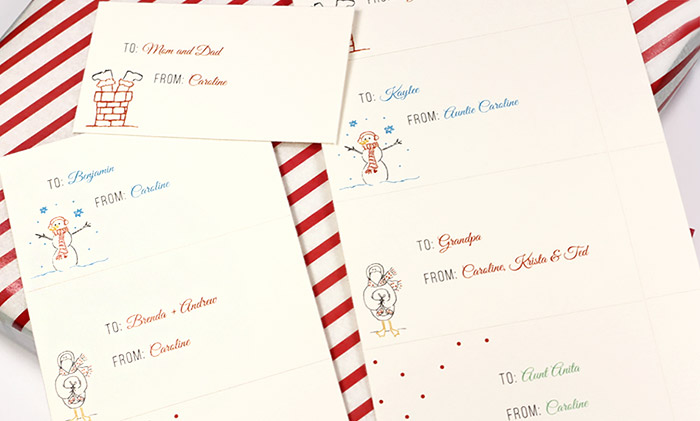 TO: Mom and Dad
FROM: Caroline
TO: Benjamin
FROM: Caroline
TO: Brenda + Andrew
FROM: Caroline
TO: Kaylee
FROM: Auntie Caroline
TO: Grandpa
FROM: Caroline, Krista & Ted
TO: Aunt Anita
FROM: Caroline